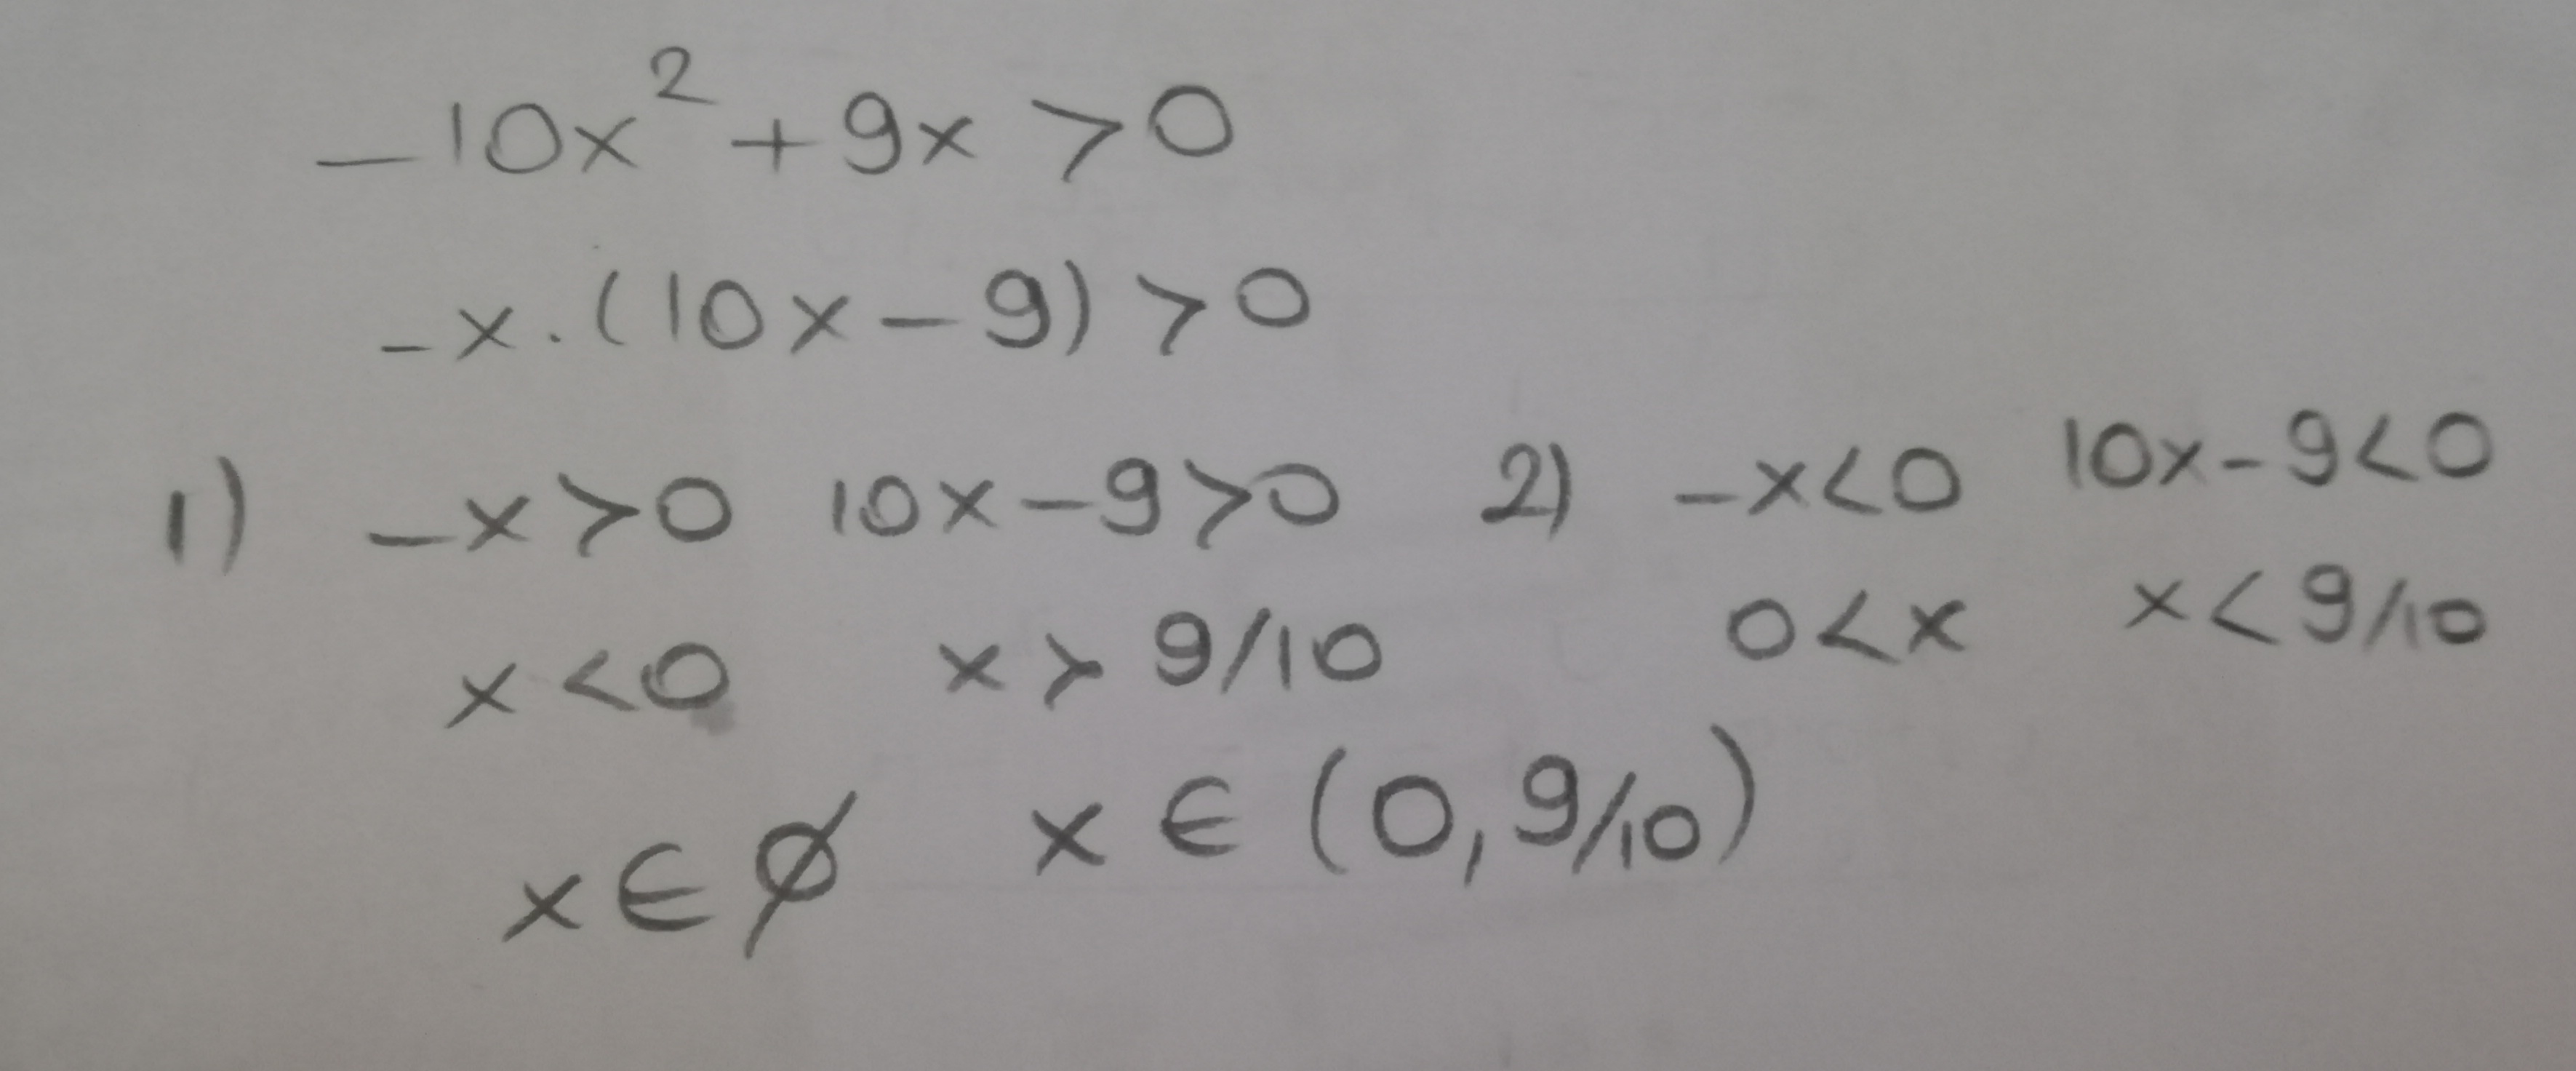 -10x² + 9x > 0
-x . (10x - 9) > 0
1) -x > 0 10x - 9 > 0 2) -x < 0 10x - 9 < 0
x < 0 x > 9/10 0 < x x < 9/10
x ∈ ∅ x ∈ (0, 9/10)